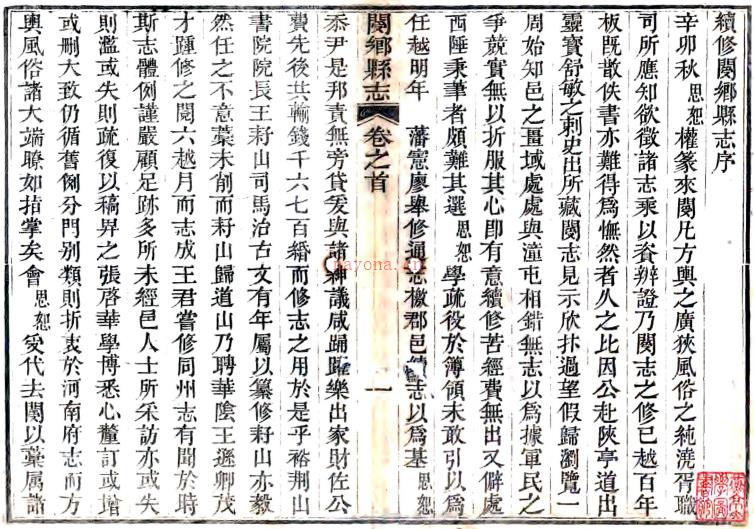 續修閿鄉縣志序
辛卯秋思恕權篆來閿凡方輿之廣狹風俗之純澆胥職
司所應知欲徵諸志乘以資辨證乃閿志之修已越百年
板旣散佚書亦難得爲憮然者久之比因公赴陝亭道出
靈寶舒敏之刺史出所藏閿志見示欣抃過望假歸瀏覽一
周始知邑之畺域處處與潼屯相錯無志以爲據軍民之
爭競實無以折服其心卽有意續修苦經費無出又僻處
西陲秉筆者頗難其選思恕學疏役於簿領未敢引以爲
任越明年 藩憲廖舉修通志檄郡邑續志以爲基思恕
閿鄉縣志 卷之首 一
忝尹是邦責無旁貸爰與諸紳議咸踴躍樂出家財佐公
費先後共輸錢千六七百緡而修志之用於是乎裕荆山
書院院長王耔山司馬治古文有年屬以纂修耔山亦毅
然任之不意藁未削而耔山歸道山乃聘華陰王遜卿茂
才踵修之閱六越月而志成王君嘗修同州志有聞於時
斯志體例謹嚴顧足跡多所未經邑人士所采訪亦或失
則濫或失則疏復以稿畀之張啓華學博悉心釐訂或增
或刪大致仍循舊例分門别類則折衷於河南府志而方
輿風俗諸大端瞭如指掌矣會思恕受代去閿以藁属諸